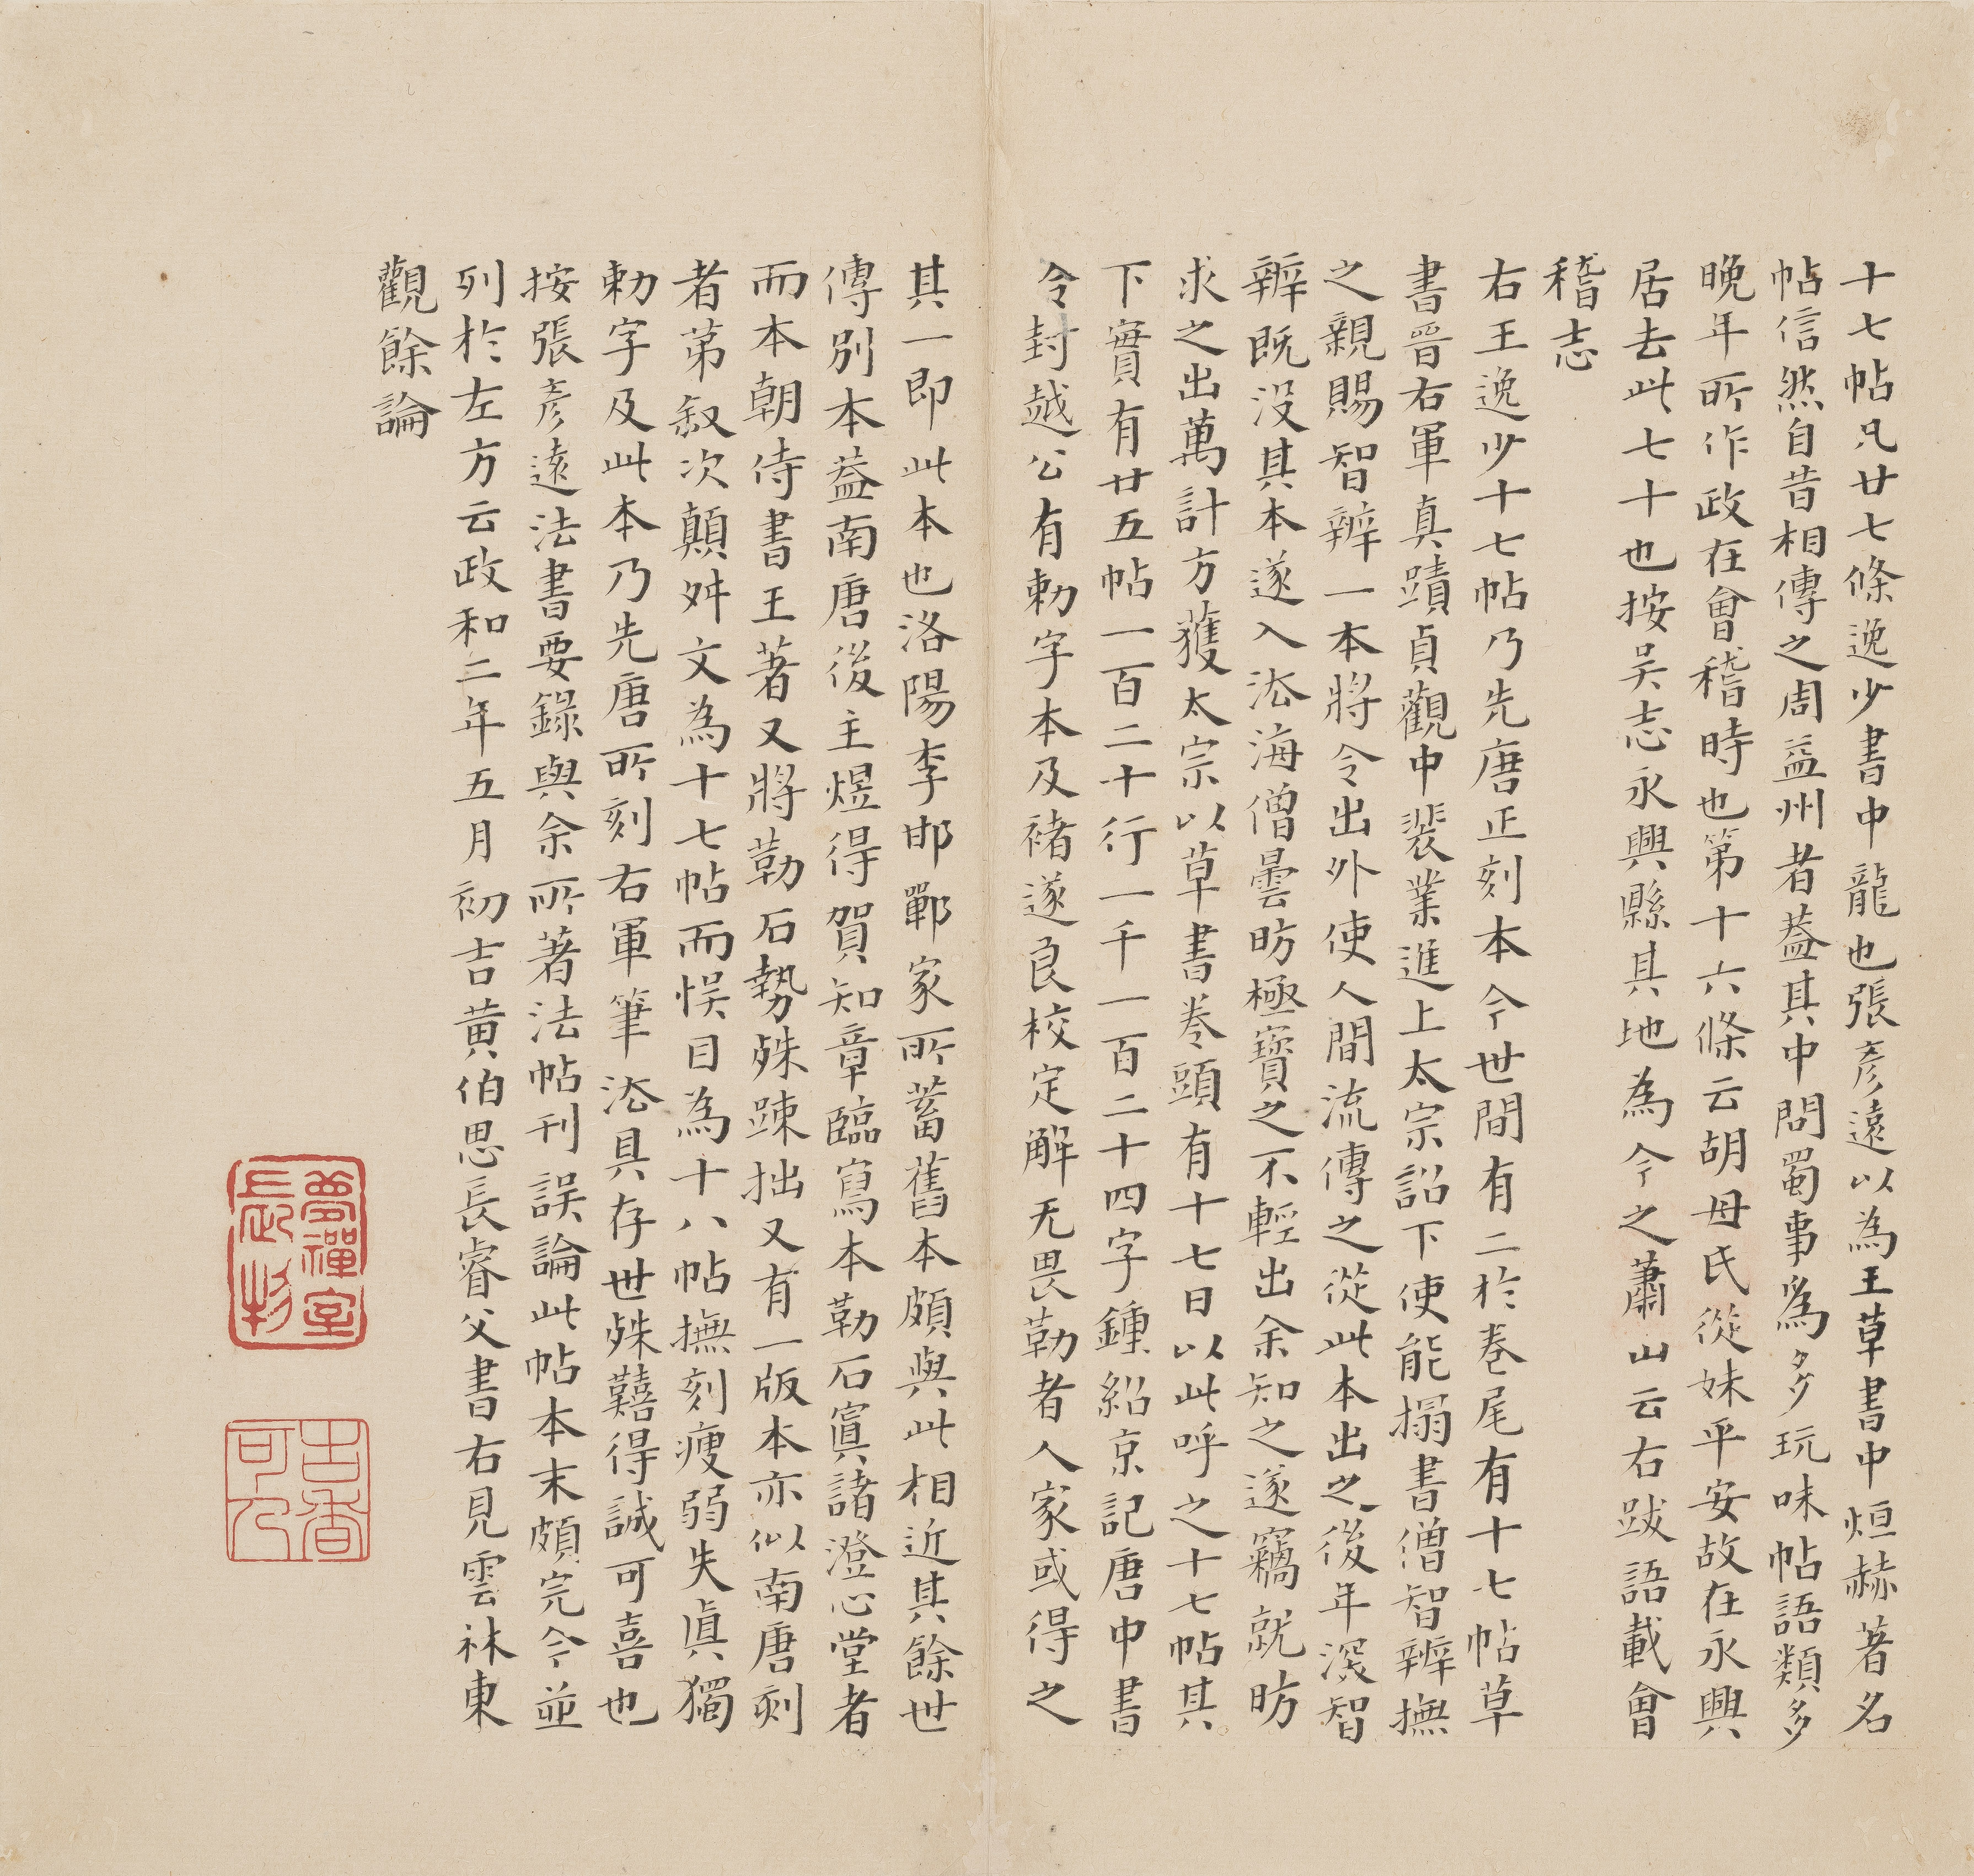 十七帖凡廿七條逸少書中龍也張彥遠以為王草書中烜赫著名
帖信然自昔相傳之周益州者葢其中問蜀事爲多玩味帖語類多
晚年所作政在會稽時也第十六條云胡母氏從妹平安故在永興
居去此七十也按吴志永興縣具地為今之蕭山云右跋語載會
稽志
右王逸少十七帖乃先唐正刻本今世間有二於卷尾有十七帖草
書晉右軍真蹟貞觀中裴業進上太宗詔下使能搨書僧智辨撫
之親賜智辨一本將令出外使人間流傳之從此本出之後年深智
辨既没其本遂入㳒海僧曇昉極寶之不輕出余知之遂竊就昉
求之出萬計方獲太宗以草書卷頭有十七日以此呼之十七帖其
下實有廿五帖一百二十行一千一百二十四字鍾紹京記唐中書
令封越公有勅字本及褚遂良校定解无畏勒者人家或得之
其一即此本也洛陽李邯鄲家所蓄舊本頗與此相近其餘世
傳別本葢南唐後主煜得賀知章臨寫本勒石寘諸澄心堂者
而本朝侍書王著又將勒石勢殊踈拙又有一版本亦似南唐刻
者第叙次顛舛文為十七帖而悞目為十八帖撫刻瘦弱失眞獨
勅字及此本乃先唐所刻右軍筆㳒具存世殊囏得誠可喜也
按張彥遠法書要錄與余所著法帖刊誤論此帖本末頗完今並
列於左方云政和二年五月初吉黄伯思長睿父書右見雲林東
觀餘論
夢禪室
長物
古香
可人